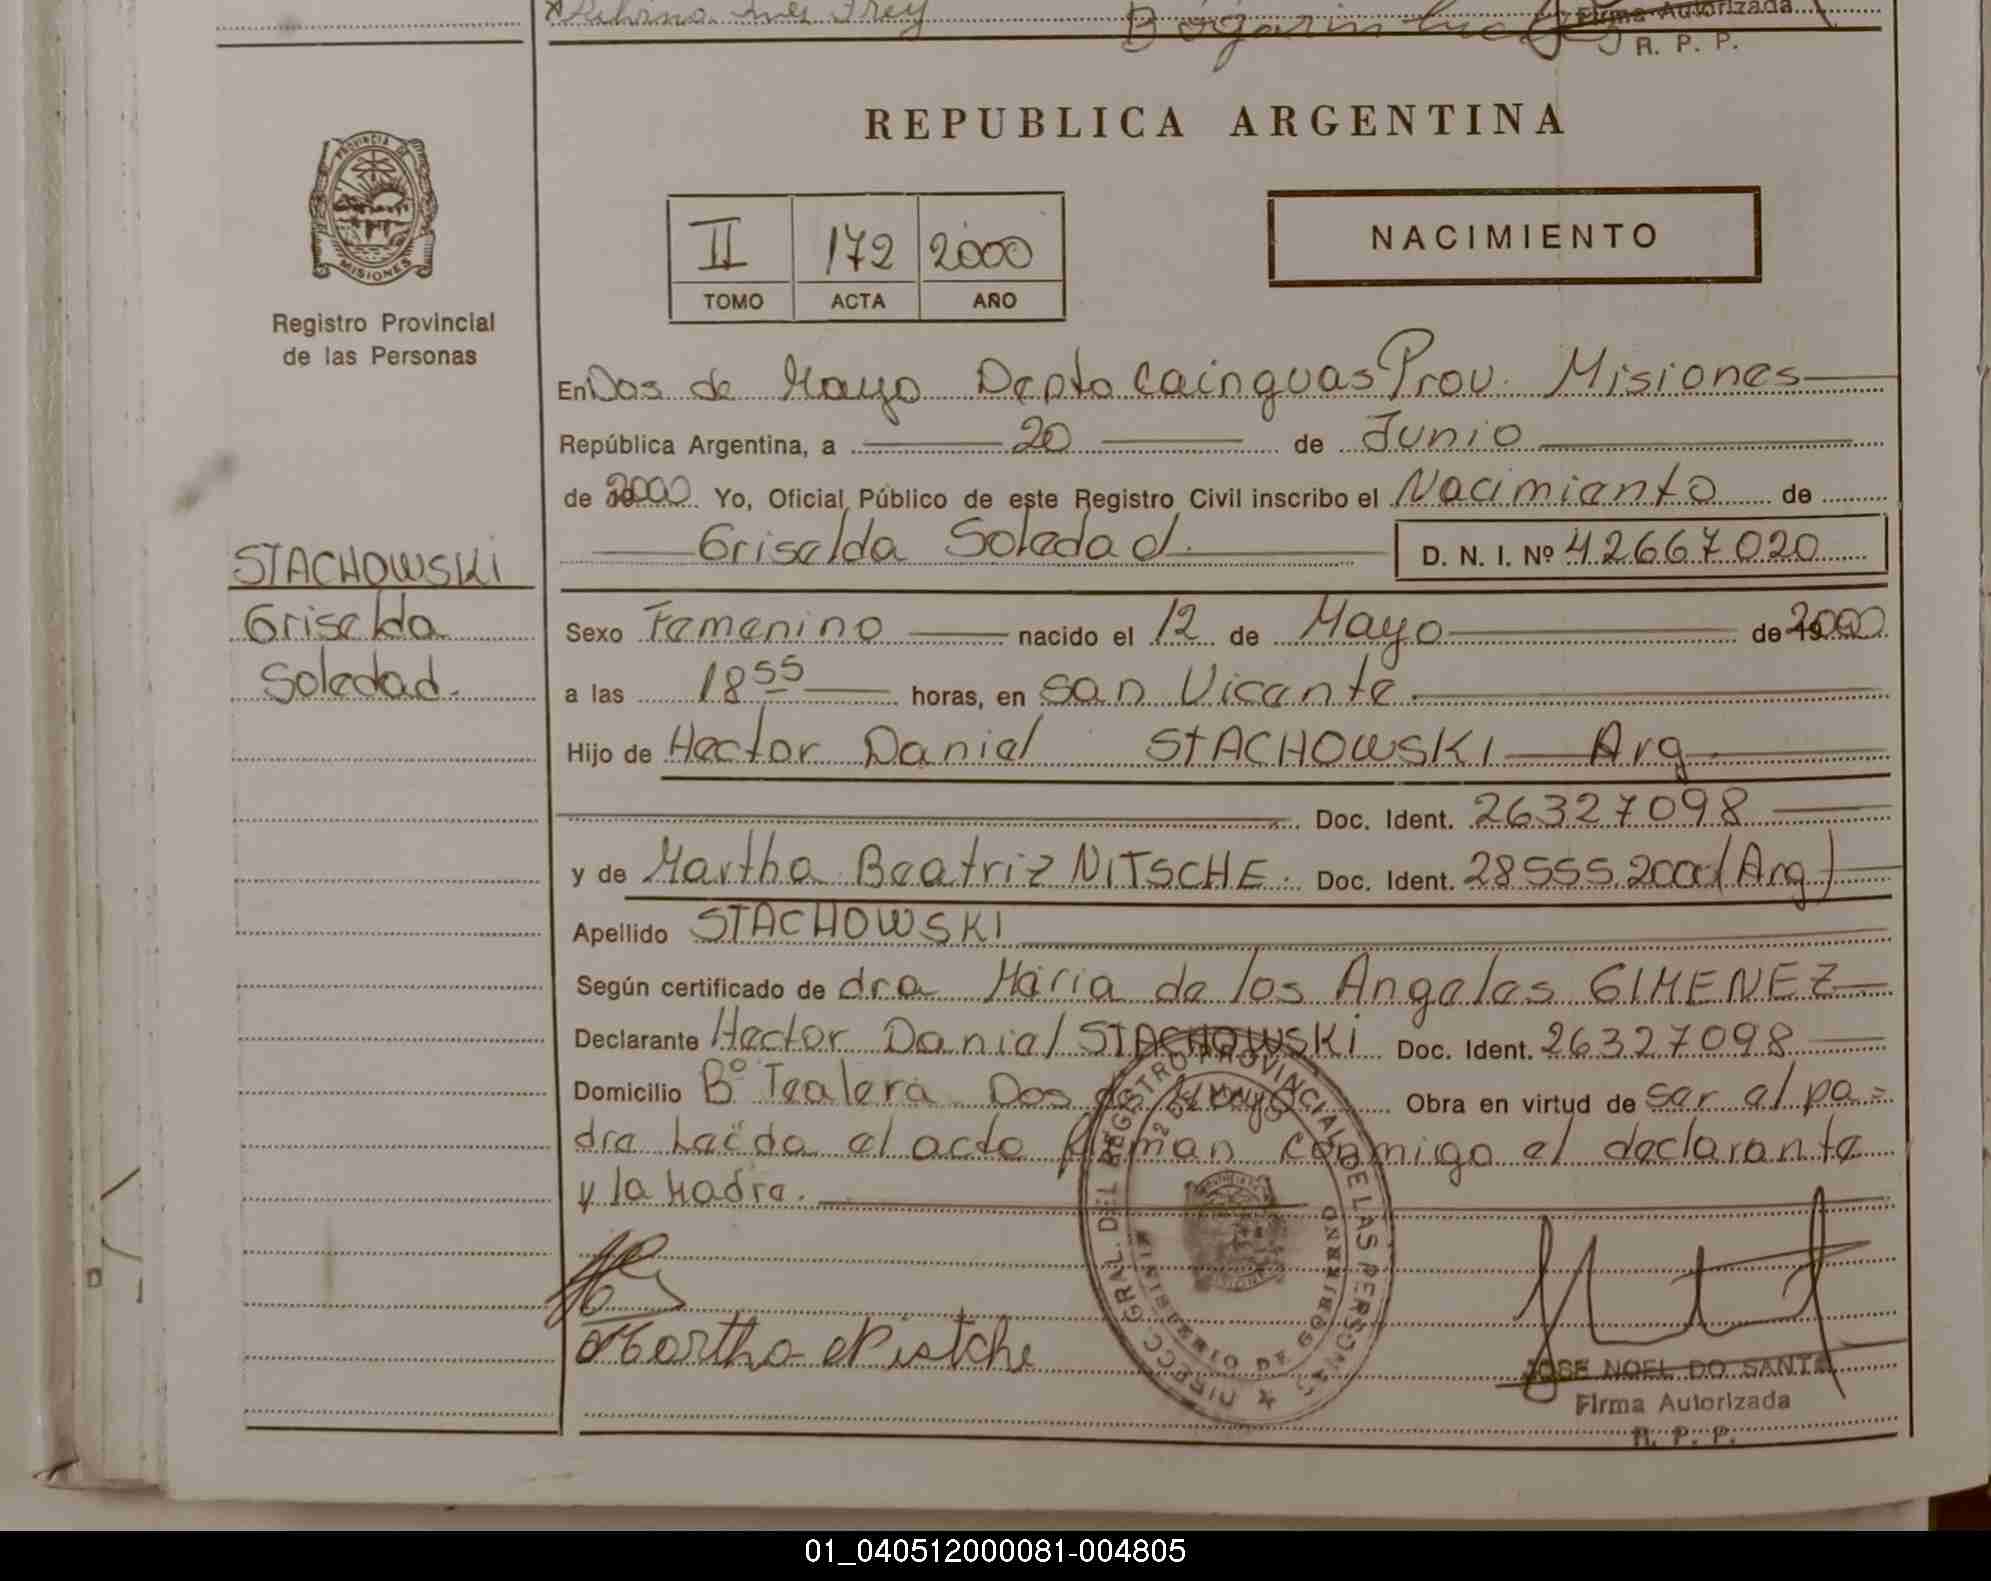 Firma Autorizada
R. P. P.
REPUBLICA ARGENTINA
PROVINCIA DE
MISIONES
Registro Provincial
de las Personas
II 172 2000
TOMO ACTA AÑO
NACIMIENTO
En Dos de Mayo Depto Cainguas Prov. Misiones
República Argentina, a 20 de Junio
de 2000 Yo, Oficial Público de este Registro Civil inscribo el Nacimiento de
Griselda Soledad. D. N. I. Nº 42667020
STACHOWSKI
Griselda
Soledad.
Sexo Femenino nacido el 12 de Mayo de 2000
a las 18 55 horas, en San Vicente
Hijo de Hector Daniel STACHOWSKI Arg
Doc. Ident. 26327098
y de Martha Beatriz NITSCHE. Doc. Ident. 28555.200 (Arg)
Apellido STACHOWSKI
Según certificado de dra Maria de los Angeles GIMENEZ
Declarante Hector Daniel STACHOWSKI Doc. Ident. 26327098
Domicilio Bº Tealera Dos de Mayo Obra en virtud de ser el pa=
dre Leído el acto firman conmigo el declarante
y la Madre.
DIRECC. GRAL. DEL REGISTRO PROVINCIAL DE LAS PERSONAS
MINISTERIO DE GOBIERNO
Martha Nistche
JOSE NOEL DO SANTO
Firma Autorizada
R. P. P.
01_040512000081-004805